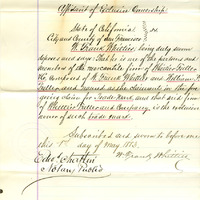 Affidavit of Exclusive Ownership.
State of California
City and County of San Francisco
W. Frank Whittier being duly sworn
deposes and says: That he is one of the persons and
members of the mercantile firm of Whittier Fuller
& Co composed of W. Frank Whittier and William P.
Fuller and named as the claimants in the fore
going claim for Trade-Mark and that said firm
of Whittier Fuller and Company, is the exclusive
owner of such trade mark.
Subscribed and sworn to before me
this 1st day of May 1883.
W. Frank Whittier
Edw. Chattin
Notary Public